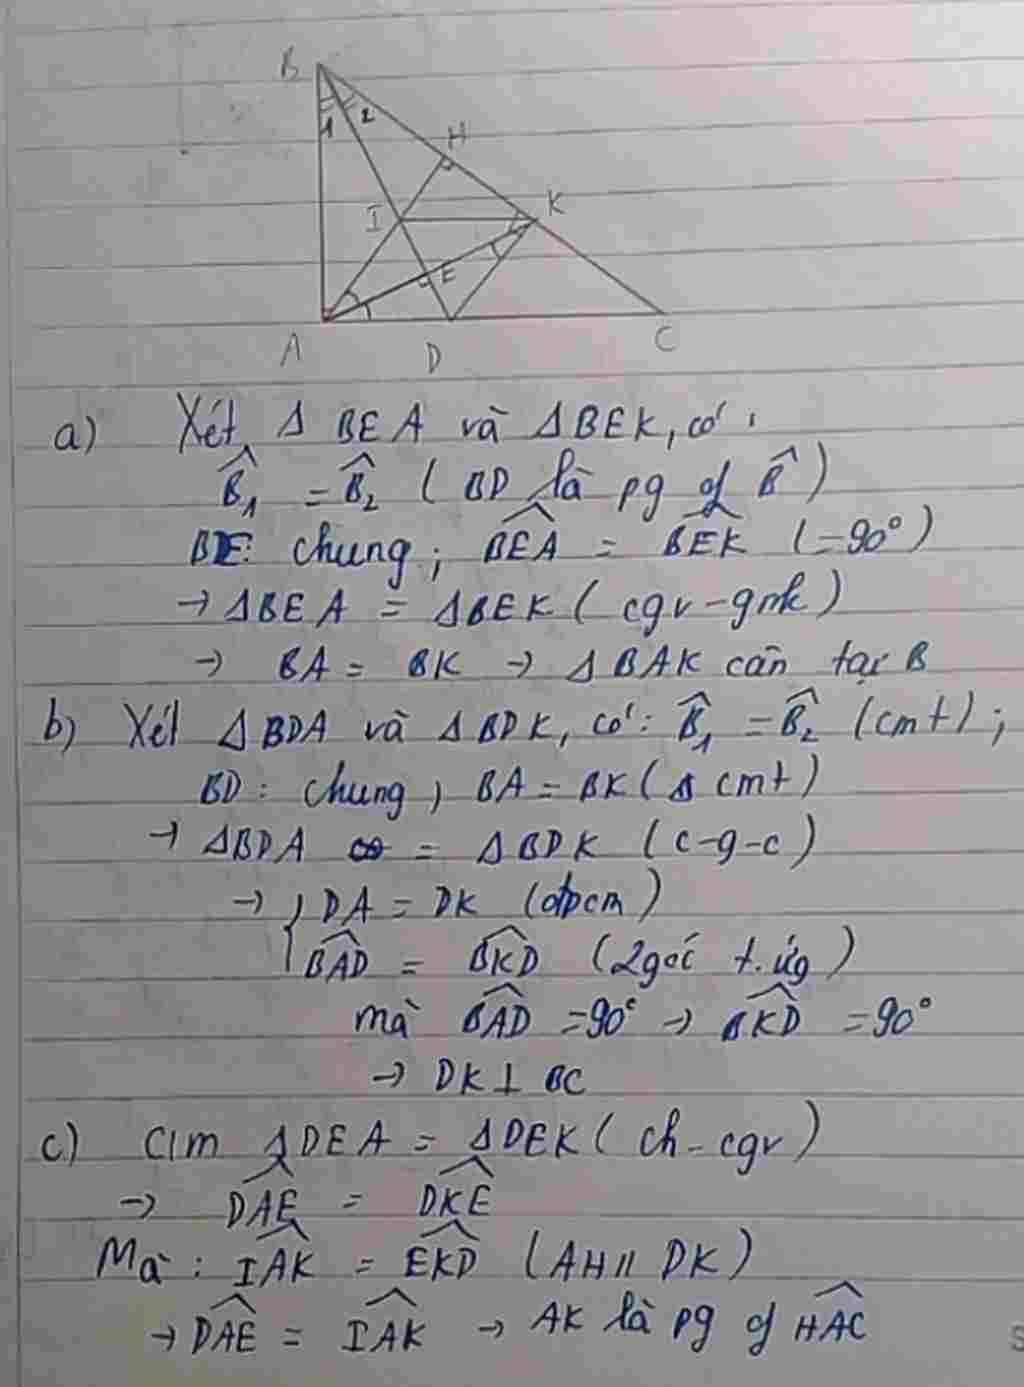 B
1 2
H
I
K
E
A
D
C
a) Xét Δ BEA và Δ BEK, có:
B̂₁ = B̂₂ ( BD là pg of B̂ )
BE: chung; BEÂ = BEK̂ (=90°)
→ ΔBEA = ΔBEK ( cgv - gnk )
→ BA = BK → Δ BAK cân tại B
b) Xét Δ BDA và Δ BDK, có: B̂₁ = B̂₂ (cmt);
BD: chung, BA = BK ( Δ cmt)
→ ΔBDA = ΔBDK (c-g-c)
→ { DA = DK (đpcm)
BAD̂ = BKD̂ (2 góc t. ứg)
mà BAD̂ =90° → BKD̂ =90°
→ DK ⊥ BC
c) C/m ΔDEA = ΔDEK ( ch - cgv )
→ DAÊ = DKÊ
Mà : IAK̂ = EKD̂ (AH // DK)
→ DAÊ = IAK̂ → AK là pg of HAĈ